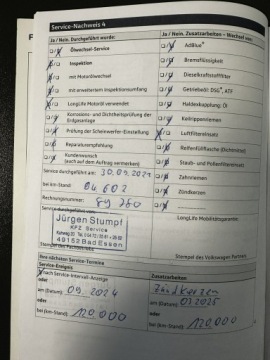 Service-Nachweis 4
Ja / Nein. Durchgeführt wurde:
Ölwechsel-Service
Inspektion
mit Motorölwechsel
mit erweitertem Inspektionsumfang
LongLife Motoröl verwendet
Korrosions- und Dichtheitsprüfung der Erdgasanlage
Prüfung der Scheinwerfer-Einstellung
Reparaturempfehlung
Kundenwunsch
(auch auf dem Auftrag vermerken)
Service durchgeführt am: 30.09.2021
bei km-Stand:
Rechnungsnummer:
Service durchgeführt von:
Jürgen Stumpf
KFZ Service
49152 Bad Essen
Ja / Nein. Zusatzarbeiten - Wechsel von:
AdBlue®
Bremsflüssigkeit
Dieselkraftstofffilter
Getriebeöl: DSG®, ATF
Haldexkupplung: Öl
Keilrippenriemen
Luftfiltereinsatz
Reifenfüllflasche (Dichtmittel)
Staub- und Pollenfiltereinsatz
Zahnriemen
Zündkerzen
LongLife Mobilitätsgarantie
Stempel des Volkswagen Partners
Ihre nächsten Service-Termine
Service-Ereignis
nach Service-Intervall-Anzeige
oder
am (Datum): 09.2024
oder
bei (km-Stand): 120.000
Zusatzarbeiten
Zündkerzen
am (Datum): 03 2025
oder
bei (km-Stand): 120.000